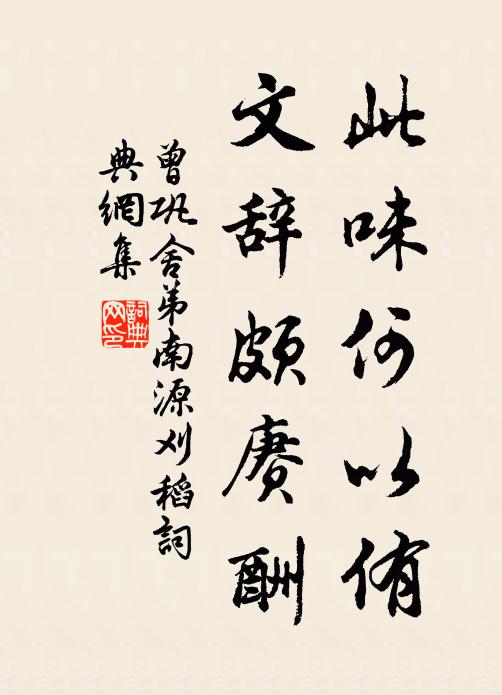 此味何以侑
文辞颇赓酬
曾巩舍弟南源刈稻詞
典網集
詞典网印